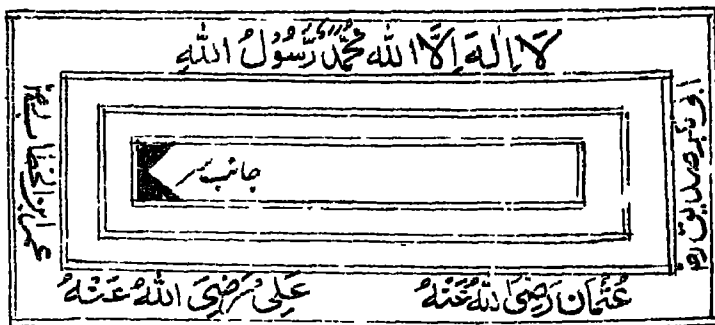 لَا إِلٰهَ إِلَّا اللّٰه مُحَمَّدٌ رَّسُوْلُ اللّٰهِ
ابی بکر صدیق رضؓ
جانب سر
عمر ابن الخطاب رضؓ
عُثْمَان رَضِیَ اللّٰهُ عَنْهُ عَلِی رَضِیَ اللّٰهُ عَنْهُ